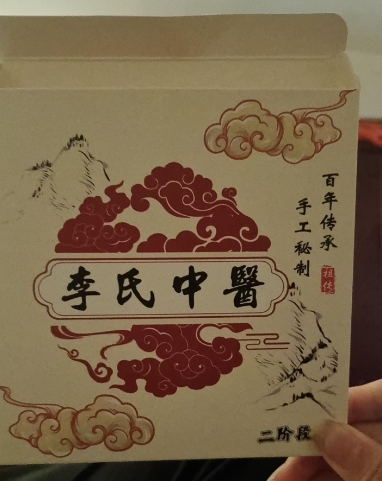 百年传承
手工秘制
祖传
李氏中醫
二阶段